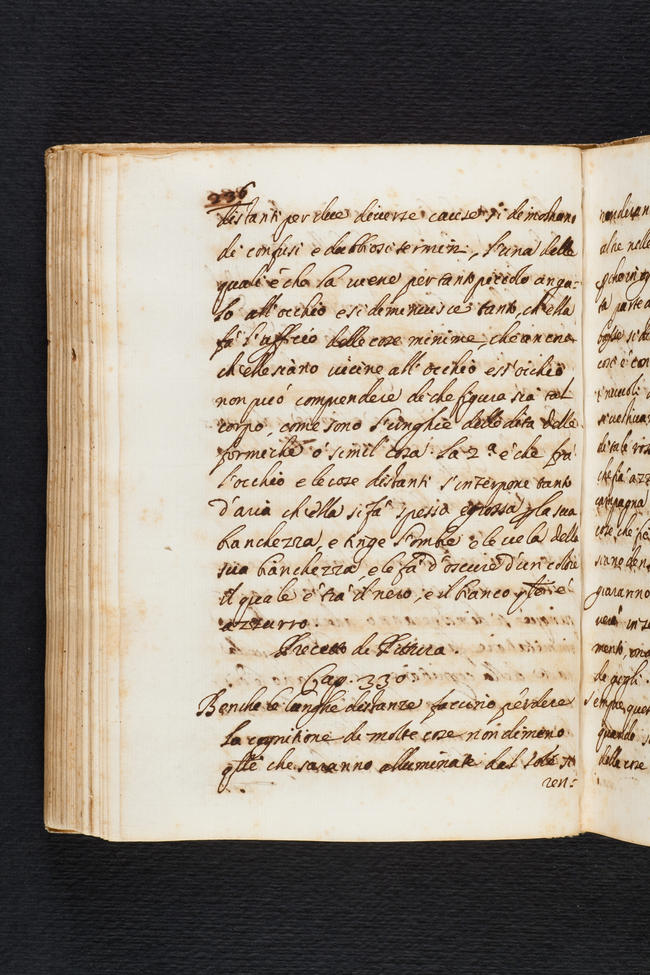 236
distanti per due diverse cause si dimostrano
di confusi e dubbiosi termini, l'una delle
quali è che la viene per tanto piccolo ango-
lo all'occhio e si diminuisce tanto, ch'ella
fà l'uffitio delle cose minime, che ancora
ch'elle siano vicine all'occhio esso occhio
non può comprendere di che figura sia tal
corpo, come sono l'unghie delle dita delle
formiche ò simil cosa. la 2.ª è che frà
l'occhio e le cose distanti s'interpone tanto
d'aria ch'ella si fà spessa e grossa, e p la sua
bianchezza e tinge l'ombre e le vela della
sua bianchezza e le fà d'oscure d'un colore
il quale è trà il nero, e il bianco, qle è
azzurro.
Precetto di Pittura.
Cap. 330
Benche le lunghe distanze faccino perdere
la cognitione di molte cose non dimeno
qlle che saranno alluminate dal sole si
ren:
non diran
altre nelle
parte a
cose
nuvoli
di tale
che fà azz
campagna
cose che
giaranno
de gigli.
sempre
quando
della cose